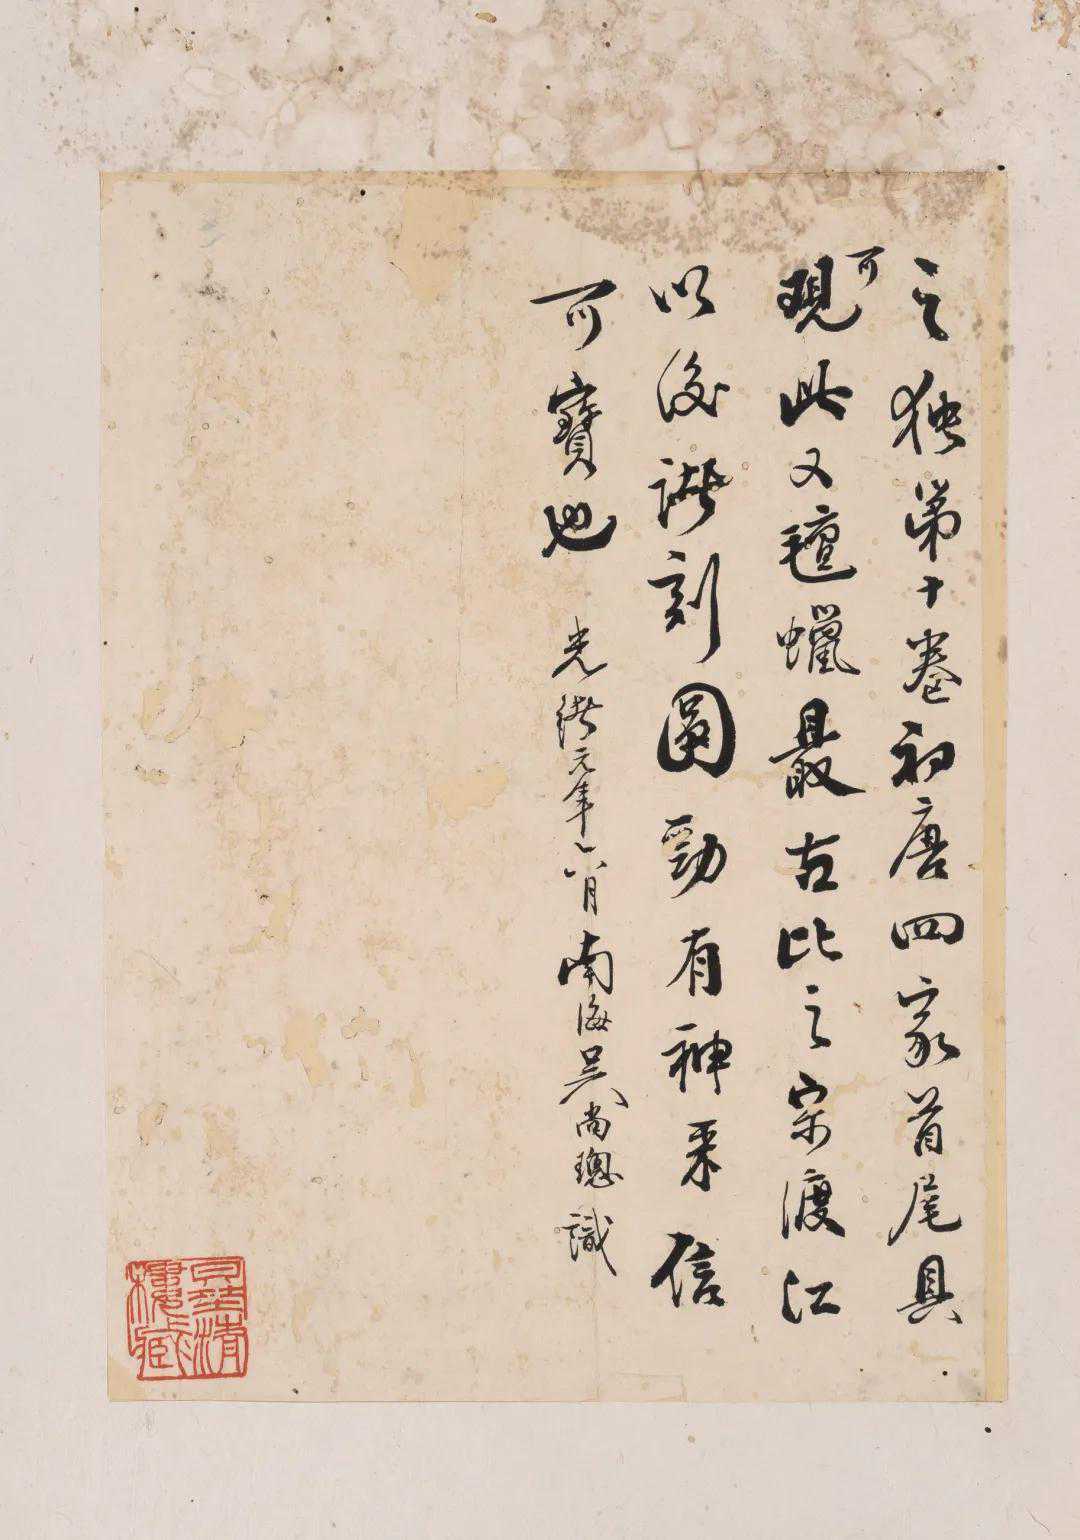 之独第十卷初唐四家首尾具
可現此又氈蠟最古比之宋渡江
以後諸刻圓勁有神采信
可寶也 光緒元年六月南海吳尚璁識